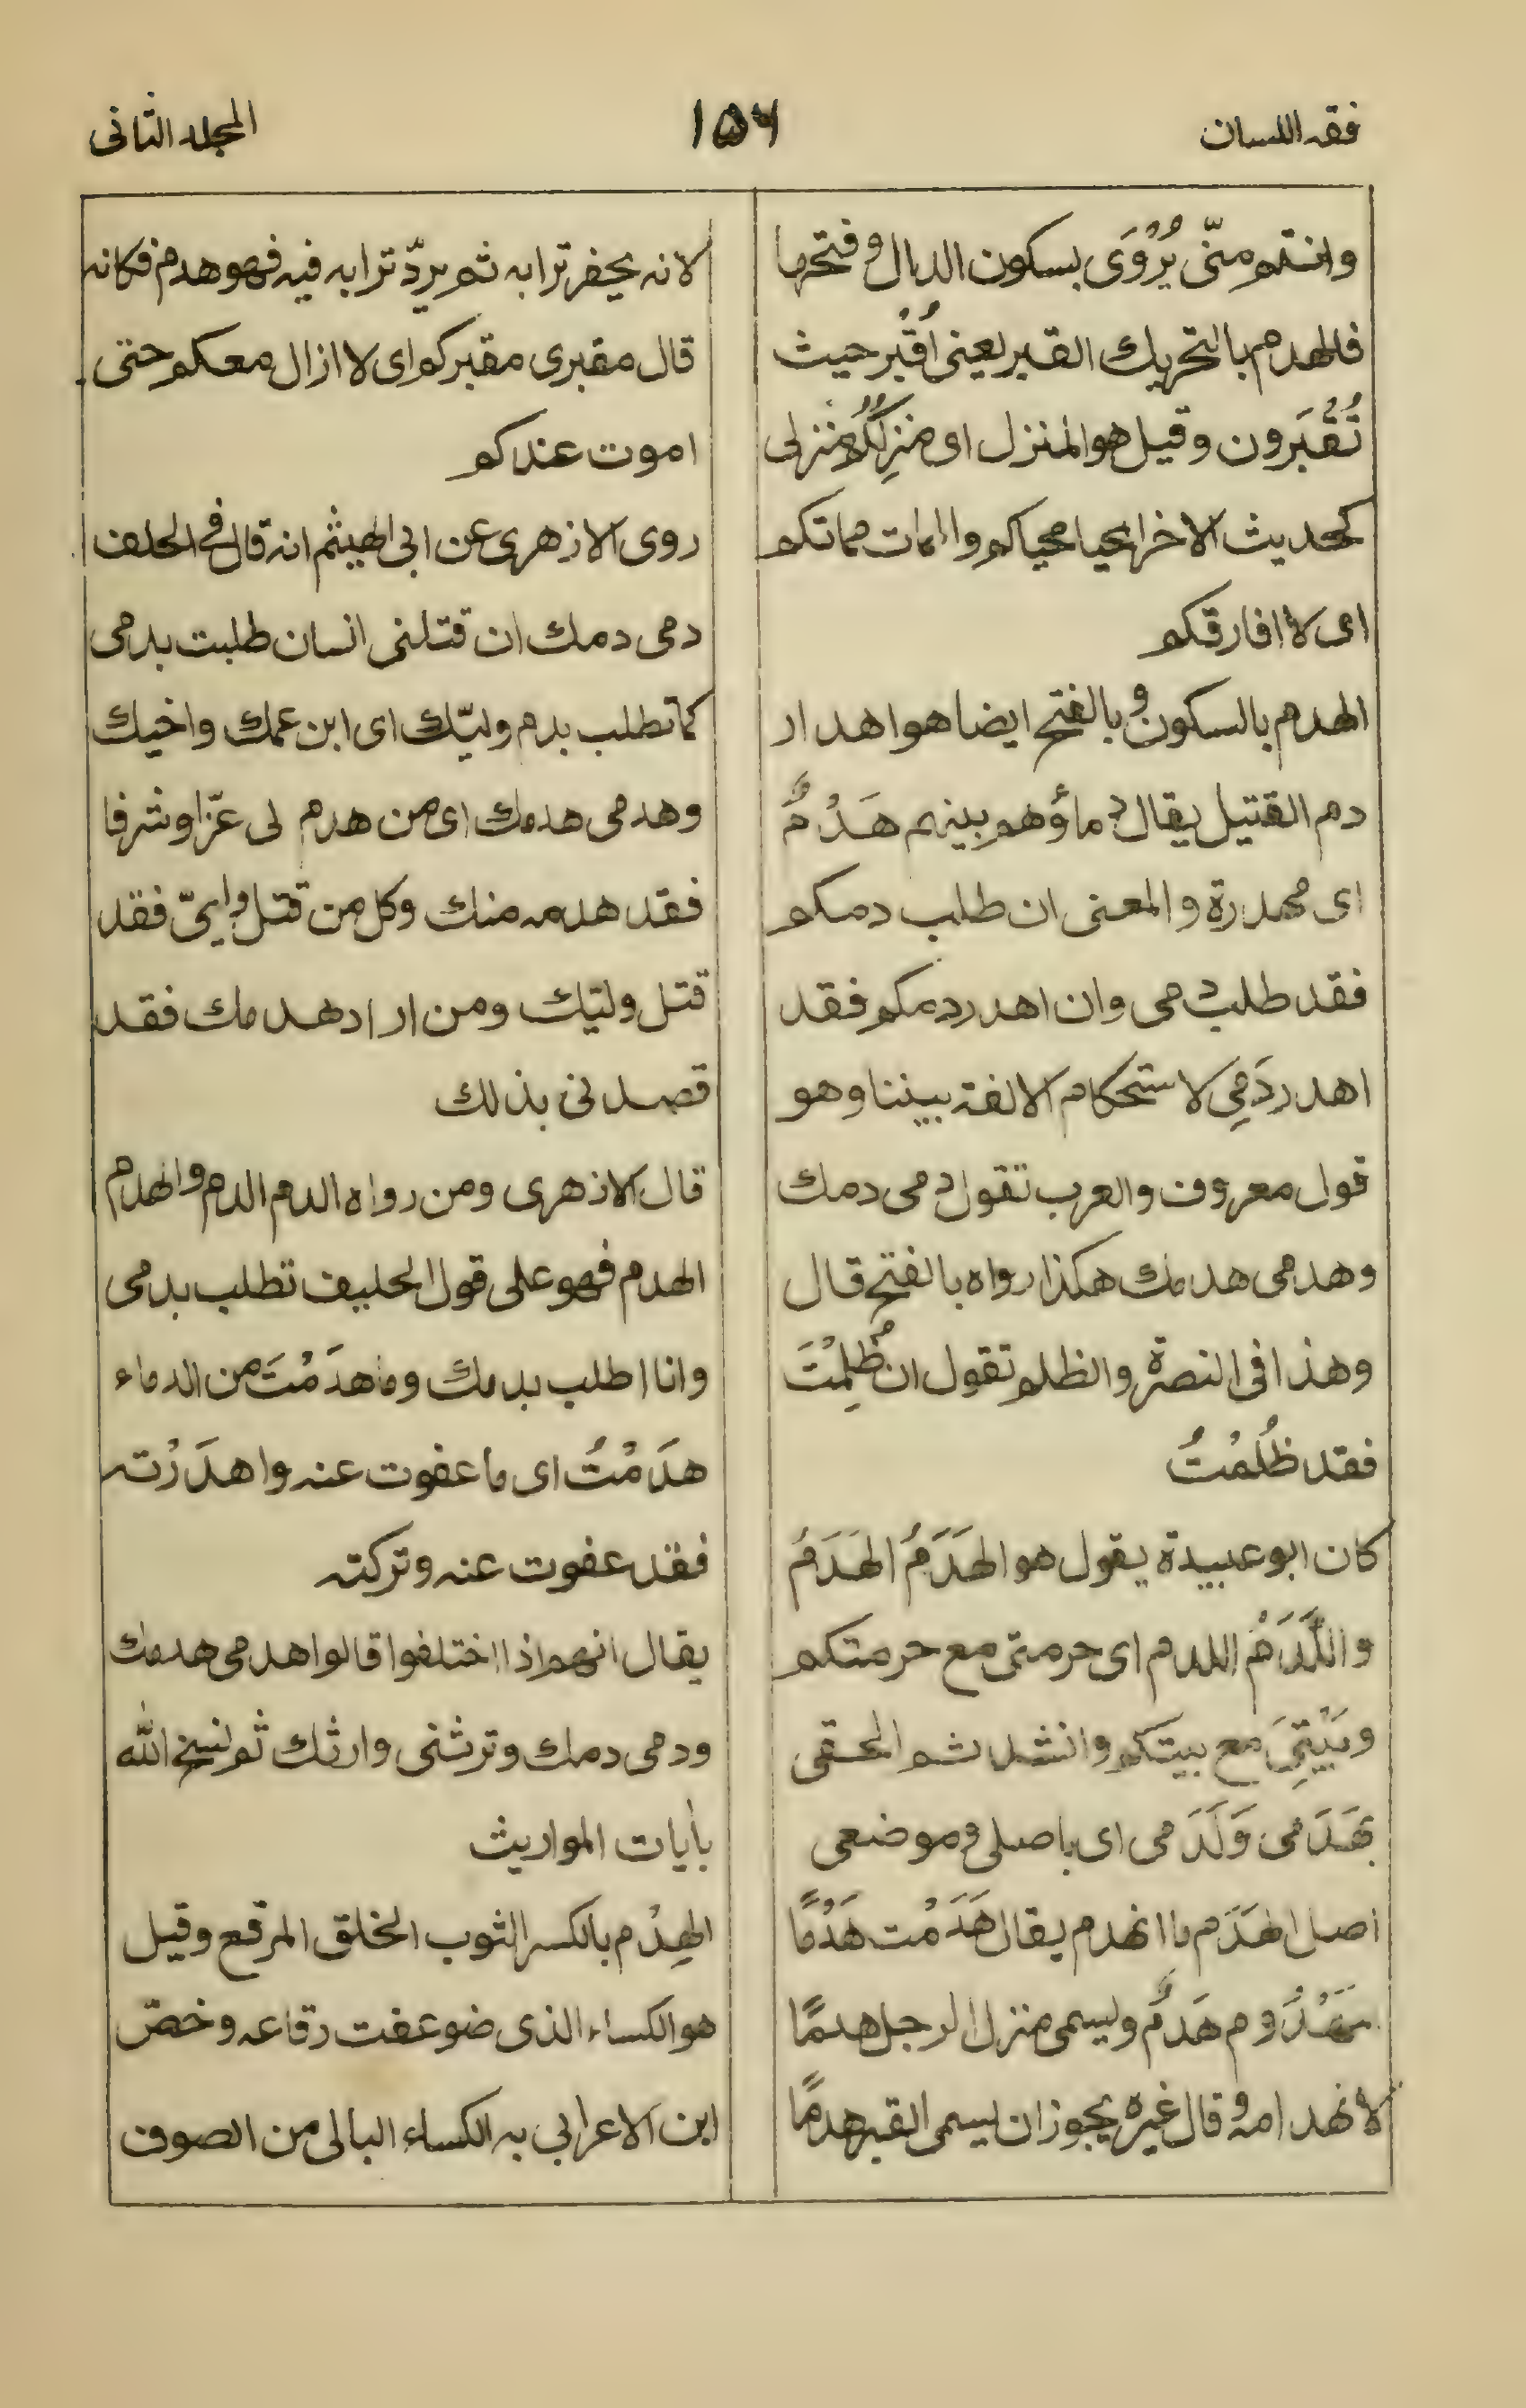 فقه اللسان
١٥٦
المجلد الثانی
وانتم منّی يُرْوَی بسكون الدال وفتحها
فالهدم بالتحريك القبر يعنی اُقْبَر حيث
تُقْبَرون وقيل هو المنزل ای منزِلُكُم منزلی
كحديث الاخر المحيا محياكم والممات مماتكم
ای لا افارقكم
الهدم بالسكون وبالفتح ايضا هو اهدار
دم القتيل يقال دماؤهم بينهم هَدْمٌ
ای مهدرة والمعنی ان طلب دمكم
فقد طلب دمی وان اهدر دمكم فقد
اهدر دَمِی لاستحكام الالفة بيننا وهو
قول معروف والعرب تقول دمی دمك
وهدمی هدمك هكذا رواه بالفتح قال
وهذا فی النصرة والظلم تقول ان ظُلِمْتَ
فقد ظُلِمْتُ
كان ابو عبيدة يقول هو الهَدَمُ الهَدَمُ
واللَّدَمُ اللدم ای حرمتی مع حرمتكم
وبَيْتِیَ مع بيتكم وانشد ثم الحقی
بهَدَمی وَلَدَمی ای باصلی وموضعی
اصل الهَدَم ما انهدم يقال هَدَمْت هَدْمًا
والمَهْدُوم هَدَمٌ ويسمی منزل الرجل هدمًا
لانهدامه وقال غيره يجوز ان يسمی القبر هدمًا
لانه يحفر ترابه ثم يردّ ترابه فيه فهو هدم فكانه
قال مقبری مقبركم ای لا ازال معكم حتی
اموت عندكم
روی الازهری عن ابی الهيثم انه قال فی الحلف
دمی دمك ان قتلنی انسان طلبت بدمی
كما تطلب بدم وليّك ای ابن عمك واخيك
وهدمی هدمك ای من هدم لی عزّا وشرفا
فقد هدمه منك وكل من قتل وليّی فقد
قتل وليّك ومن اراد هدمك فقد
قصدنی بذلك
قال الازهری ومن رواه الدم الدم والهدم
الهدم فهو علی قول الحليف تطلب بدمی
وانا اطلب بدمك وما هدَمْتَ من الدماء
هدَمْتُ ای ما عفوت عنه واهدَرْته
فقد عفوت عنه وتركته
يقال انهم اذا اختلفوا قالوا هدمی هدمك
ودمی دمك وترثنی وارثك ثم نسخ الله
بأيات المواريث
الهِدْم بالكسر الثوب الخلق المرقع وقيل
هو الكساء الذی ضوعفت رقاعه وخصّ
ابن الاعرابی به الكساء البالی من الصوف